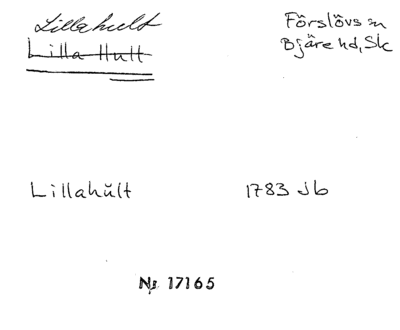 Lillahult
Lilla Hult
Förslövs sn
Bjäre hd, Sk
Lillahult 1783 Jb
No 17165